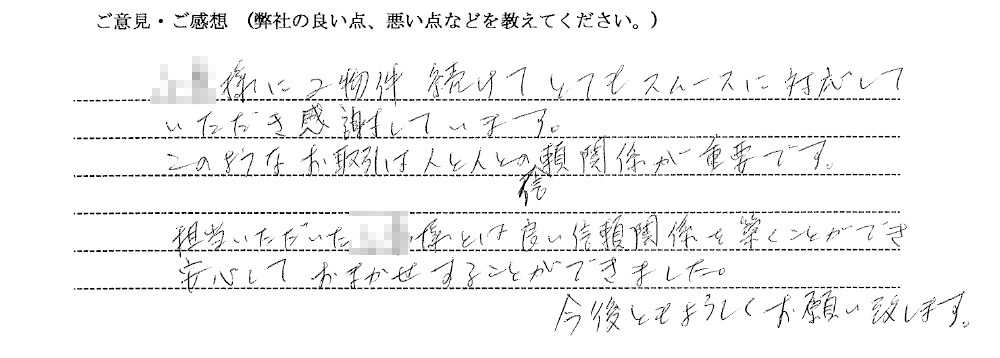 ご意見・ご感想 (弊社の良い点、悪い点などを教えてください。)
様に2物件 続けてとてもスムースに対応して
いただき感謝しています。
このようなお取引は人と人との信頼関係が重要です。
担当いただいた 様とは良い信頼関係を築くことができ
安心しておまかせすることができました。
今後ともよろしくお願い致します。